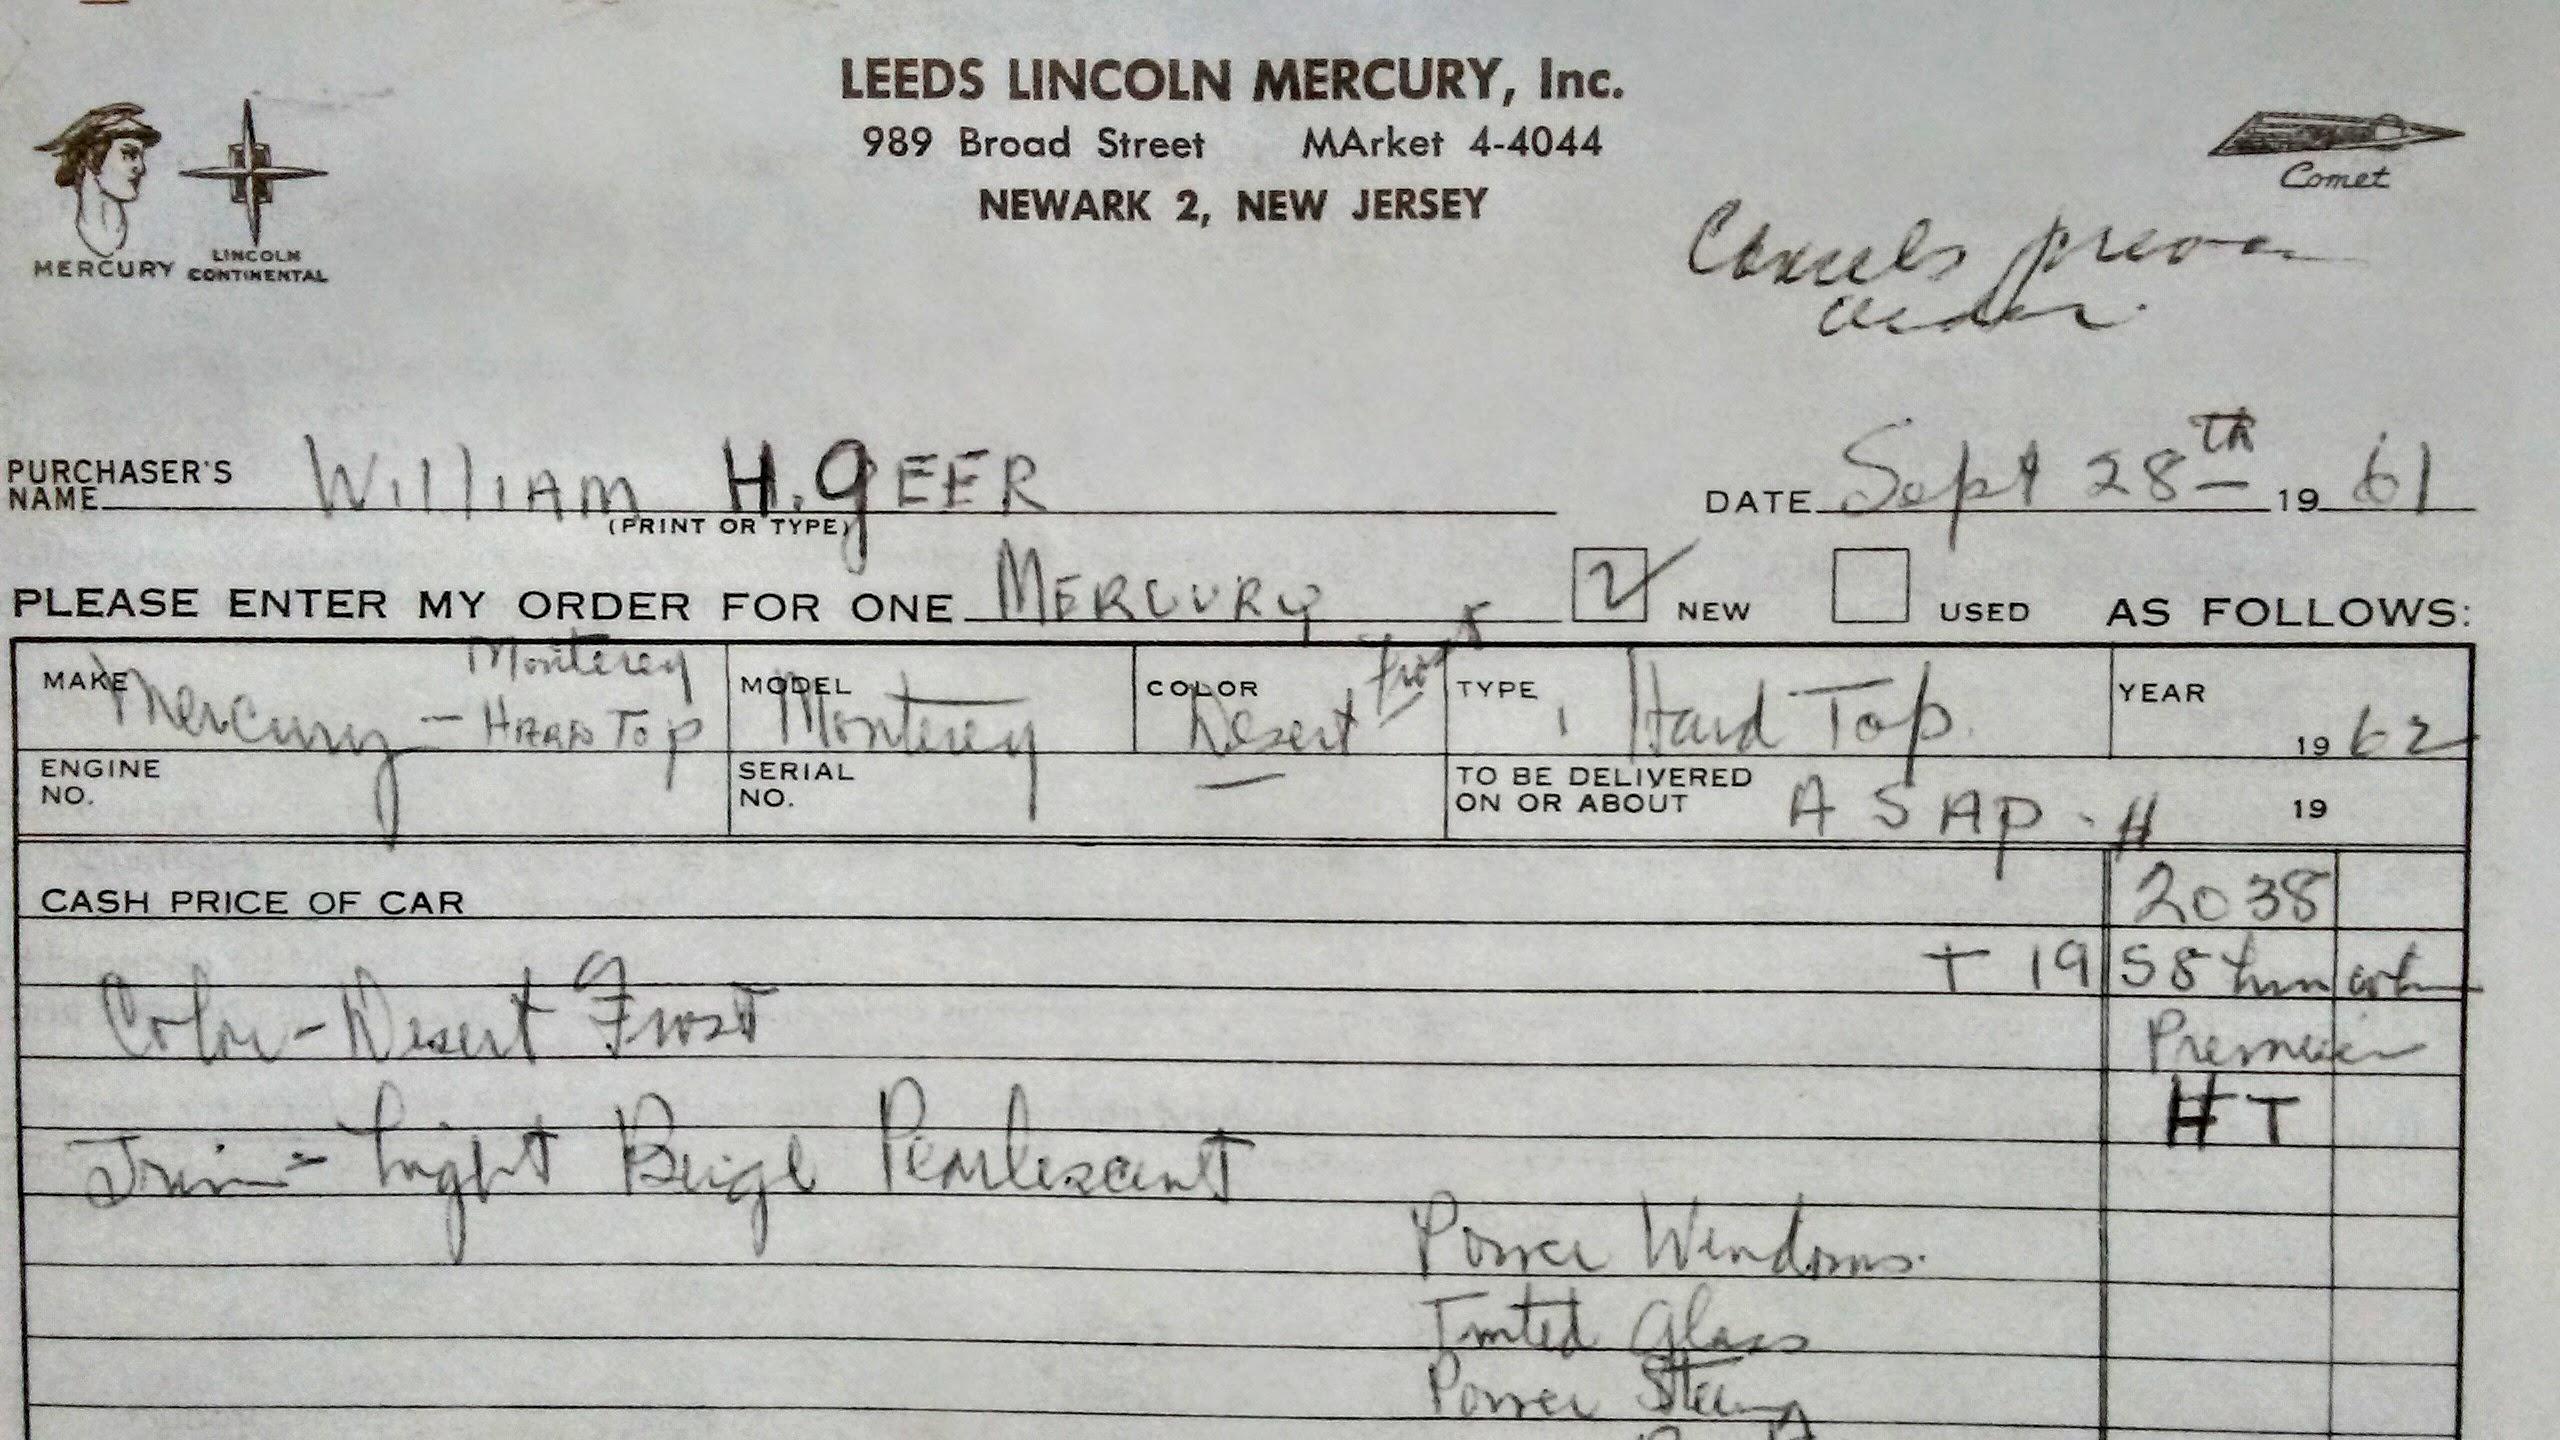 LEEDS LINCOLN MERCURY, Inc.
989 Broad Street MArket 4-4044
NEWARK 2, NEW JERSEY
MERCURY
LINCOLN
CONTINENTAL
Comet
Cancels
order.
PURCHASER'S
NAME William H. gEER
(PRINT OR TYPE)
DATE Sept 28th 19 61
PLEASE ENTER MY ORDER FOR ONE MERCURY NEW USED AS FOLLOWS:
MAKE Mercury - Monterey HARD TOP
MODEL Monterey
COLOR Desert frost
TYPE Hard Top.
YEAR 19 62
ENGINE
NO.
SERIAL
NO.
TO BE DELIVERED
ON OR ABOUT A S A P. 19
CASH PRICE OF CAR 2038
+ 1958
Color - Desert Frost
Premier
HT
Trim - Light Beige Pearlescent
Power Windows.
Tinted Glass
Power Steering